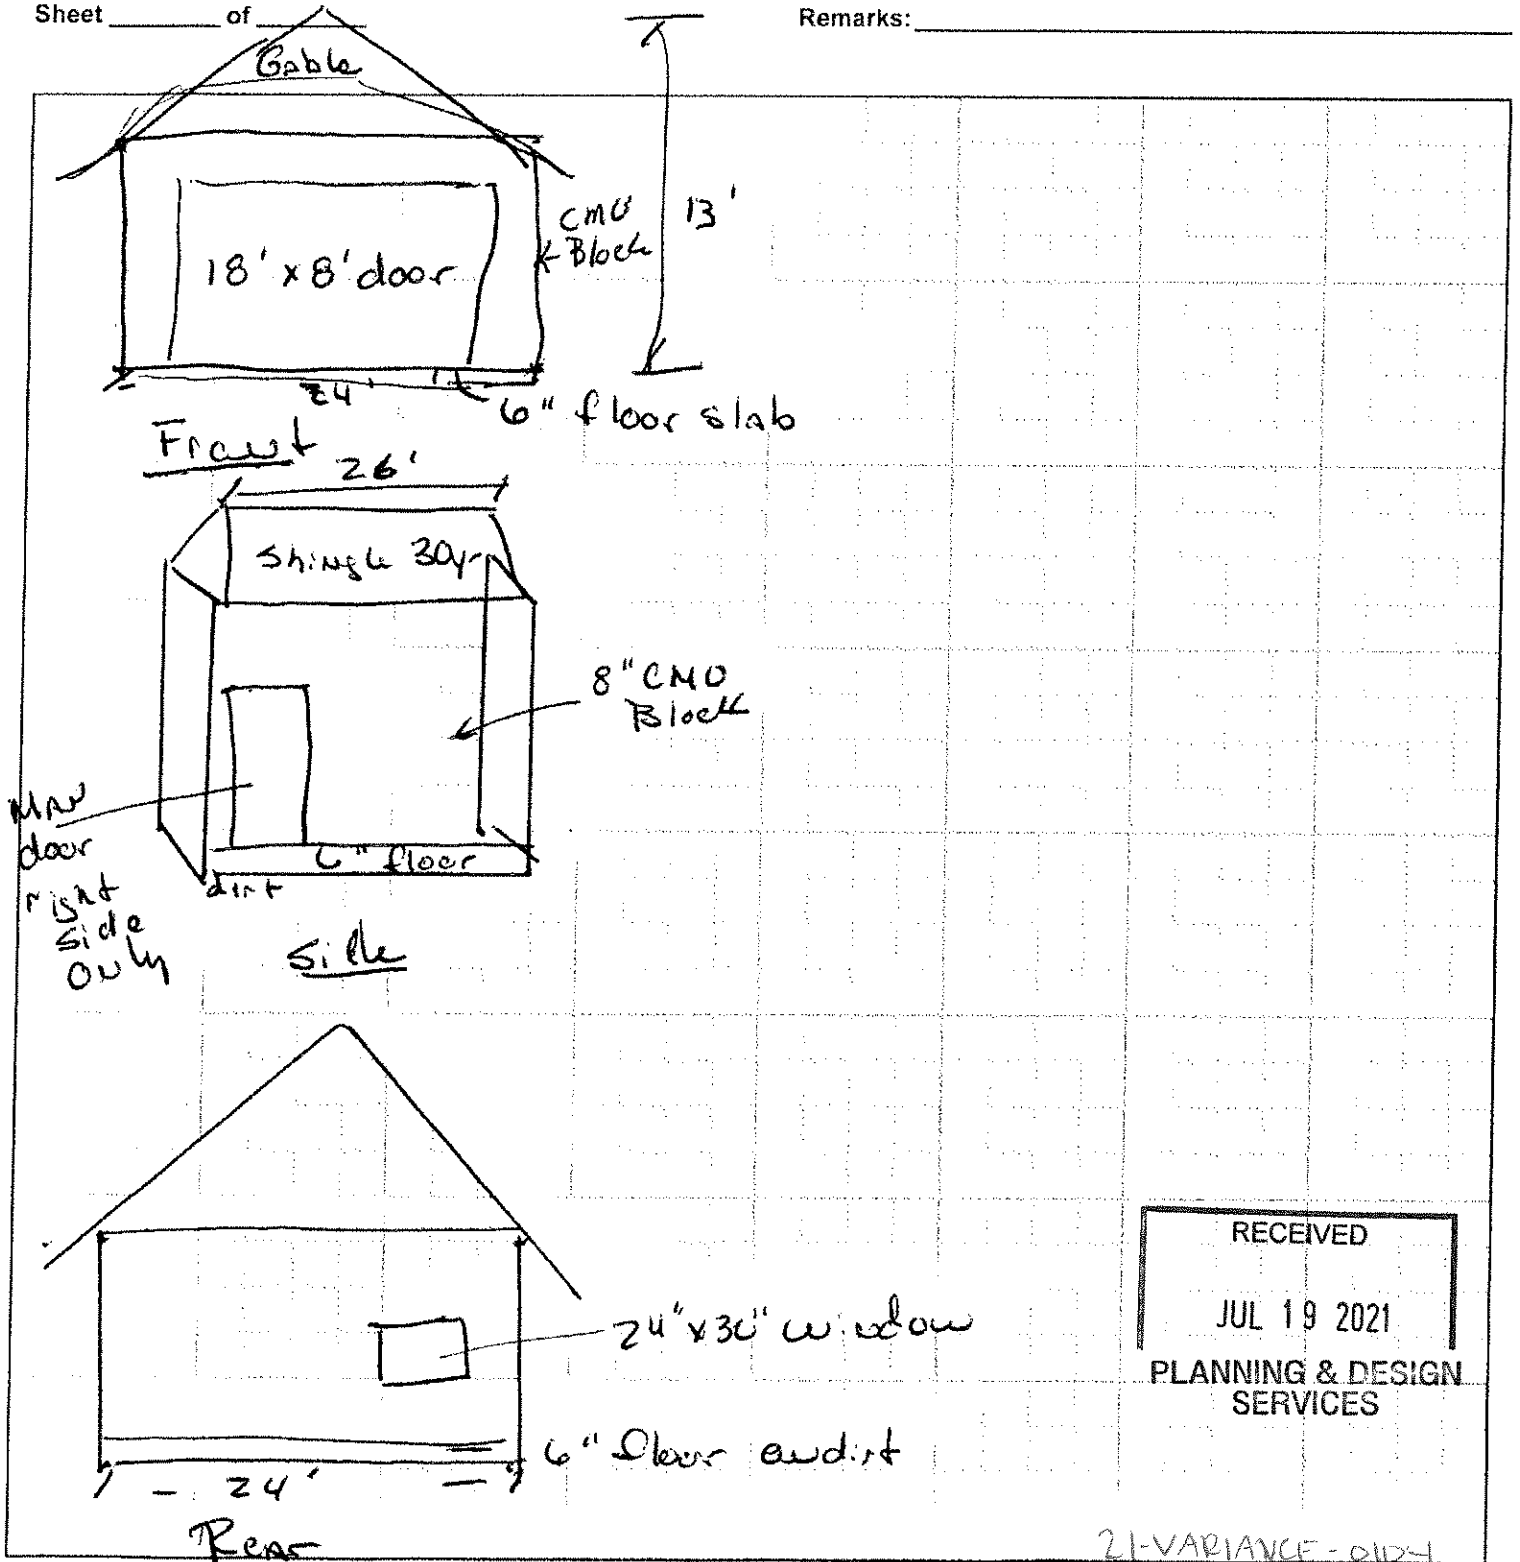 Sheet of
Remarks:
Gable
CMU
Block
13'
18' x 8' door
24'
6" floor slab
Front
26'
Shingle 30yr
8" CMU
Block
MAN
door
right
side
ONLY
6" floor
dirt
Side
24" x 30" window
6" floor on dirt
24'
Rear
RECEIVED
JUL 19 2021
PLANNING & DESIGN
SERVICES
21-VARIANCE-